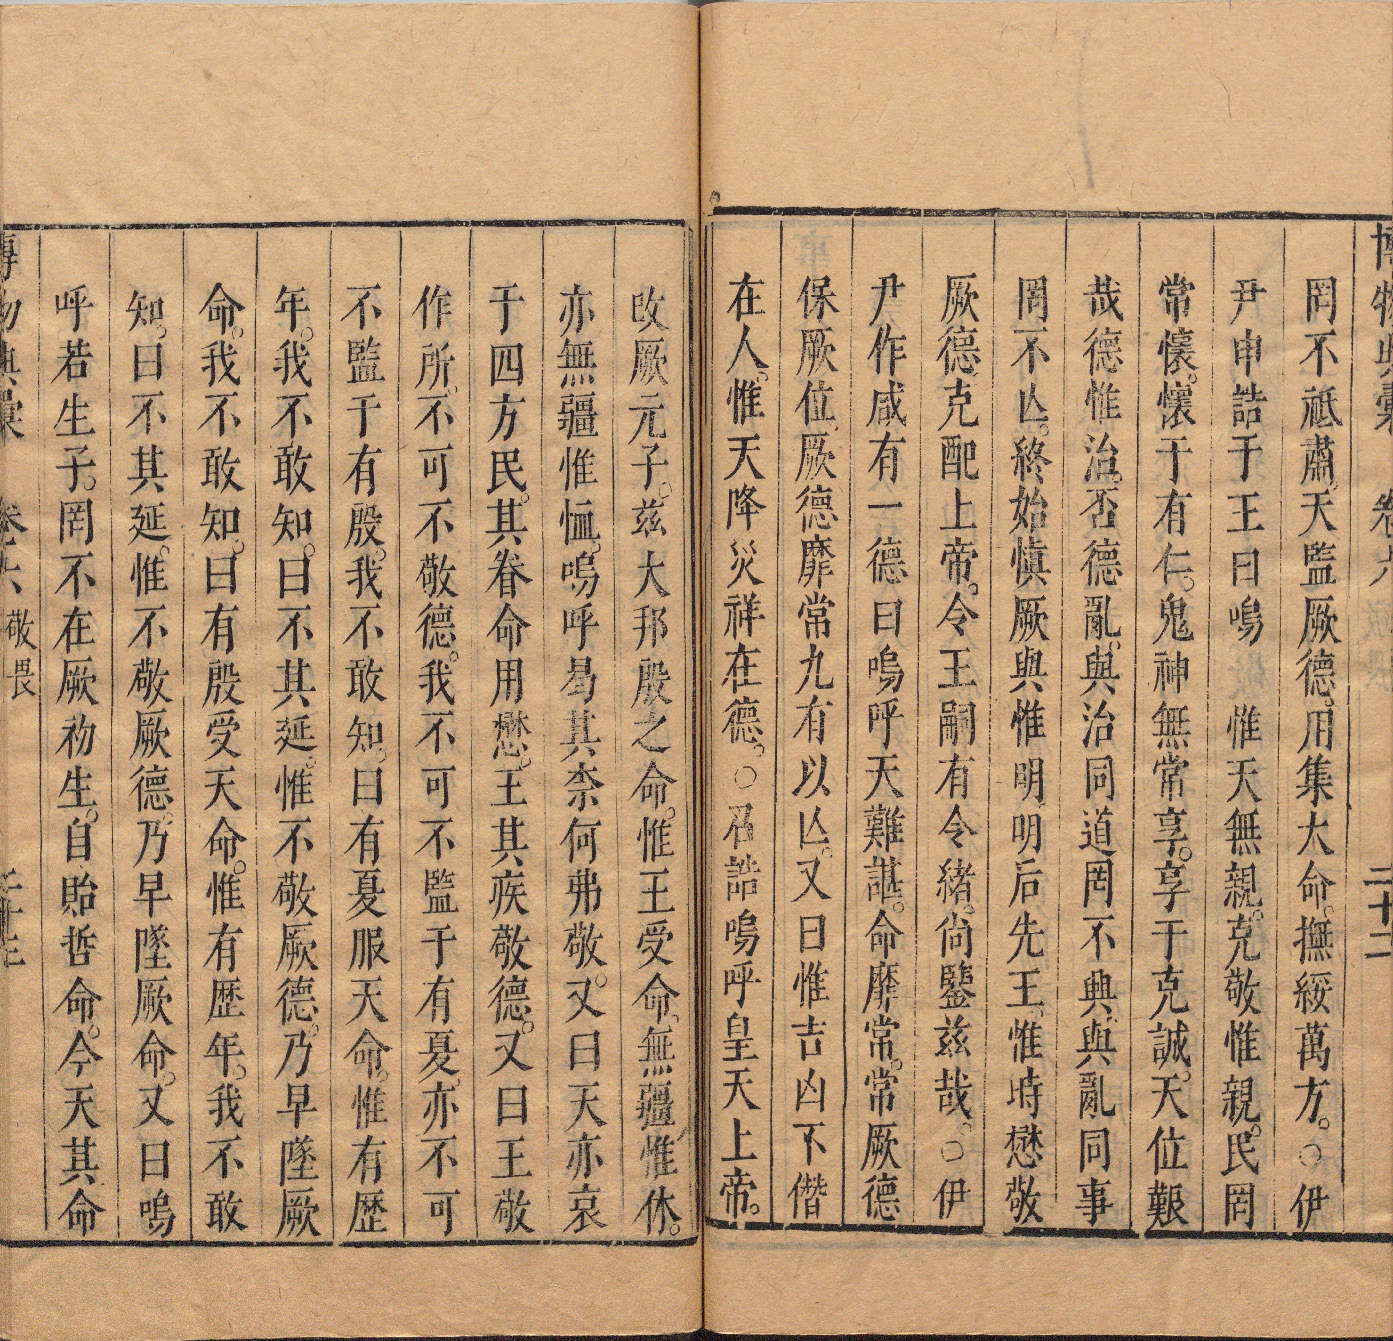 博物典彙 卷六 敬畏 二十二
罔不祗肅天監厥德。用集大命。撫綏萬方。○伊
尹申誥于王曰嗚 惟天無親。克敬惟親。民罔
常懷。懷于有仁。鬼神無常享。享于克誠。天位艱
哉德惟治。否德亂。與治同道罔不興。與亂同事
罔不亾。終始慎厥與惟明明后先王。惟時懋敬
厥德。克配上帝。今王嗣有令緒。尚鑒兹哉。○伊
尹作咸有一德曰嗚呼天難諶。命靡常。常厥德
保厥位。厥德靡常九有以亾。又曰惟吉凶不僭
在人。惟天降災祥在德。○召誥嗚呼皇天上帝。
改厥元子。兹大邦殷之命。惟王受命。無疆惟休。
亦無疆惟恤。嗚呼曷其柰何弗敬。又曰天亦哀
于四方民。其眷命用懋。王其疾敬德。又曰王敬
作所。不可不敬德。我不可不監于有夏。亦不可
不監于有殷。我不敢知。曰有夏服天命。惟有歷
年。我不敢知。曰不其延。惟不敬厥德。乃早墜厥
命。我不敢知。曰有殷受天命。惟有歷年。我不敢
知。曰不其延。惟不敬厥德。乃早墜厥命。又曰嗚
呼若生子。罔不在厥初生。自貽哲命。今天其命
博物典彙 卷六 敬畏